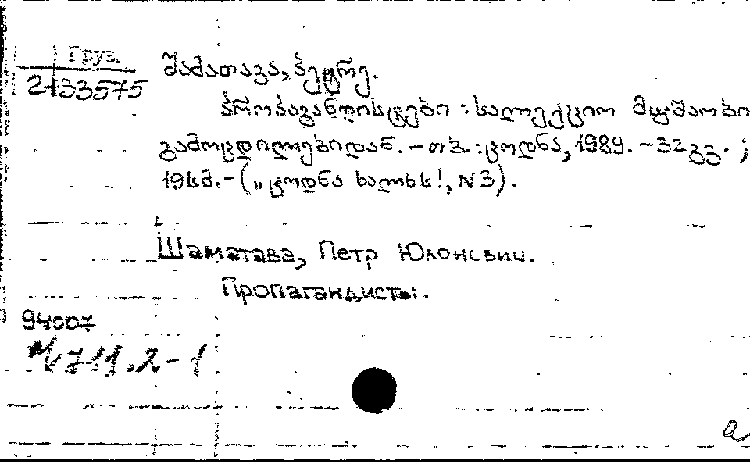 Груз.
2133575
შამათავა, პეტრე.
პროპაგანდისტები : სალექციო მუშაობი
გამოცდილებიდან. – თბ. : ცოდნა, 1989. – 32 გვ. ;
19სმ. – („ცოდნა ხალხს!, N3).
Шаматава, Петр Юлонсвич.
Пропагандисты.
94007